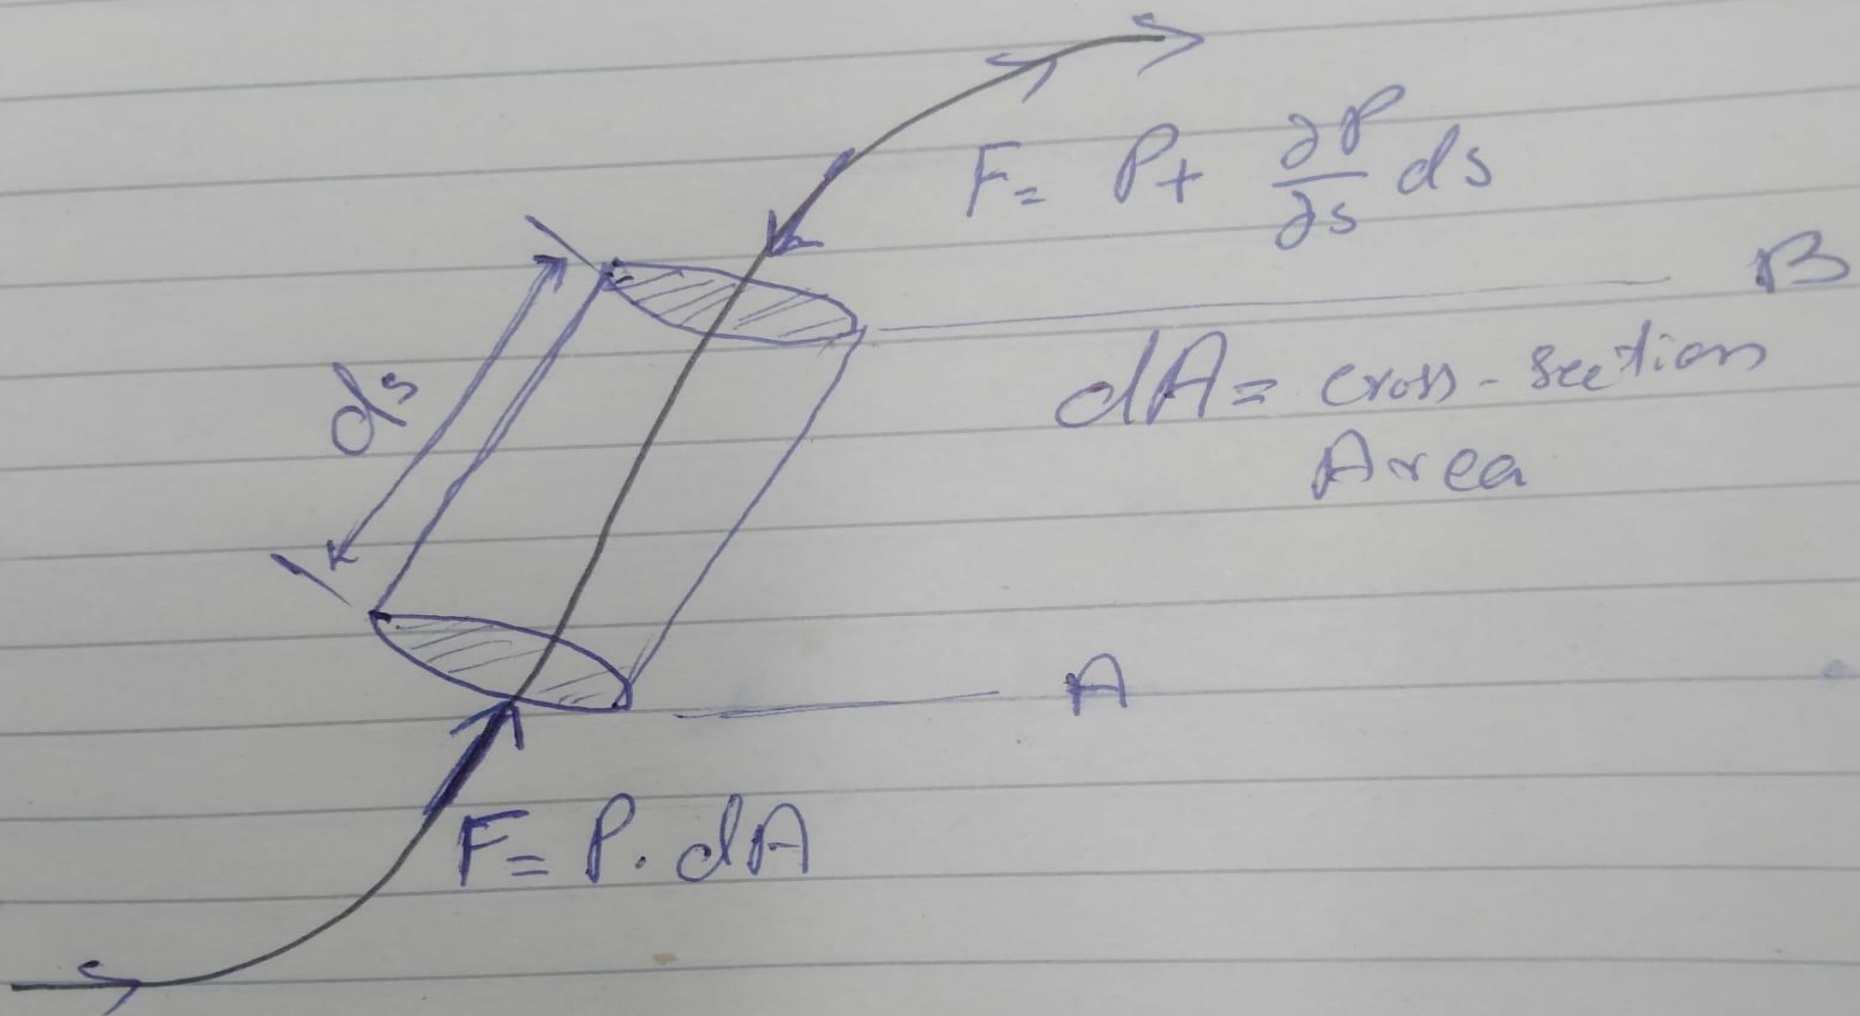 F= P+ ∂P/∂s ds
B
ds
dA= cross-section
Area
A
F= P. dA